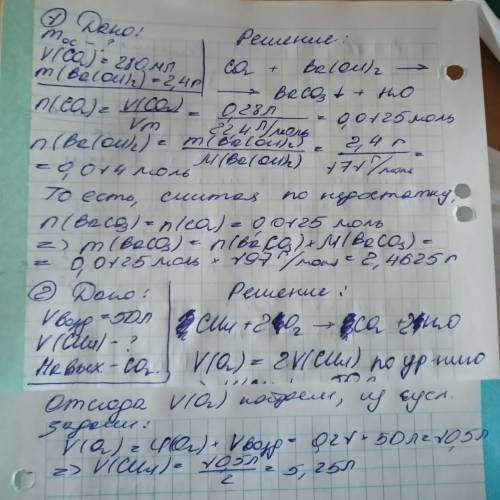 ① Дано:
mос - ?
V(CO₂) = 280 мл
m(Ba(OH)₂) = 2,4 г
Решение:
CO₂ + Ba(OH)₂ →
→ BaCO₃↓ + H₂O
n(CO₂) = V(CO₂)/Vm = 0,28 л/22,4 л/моль = 0,0125 моль
n(Ba(OH)₂) = m(Ba(OH)₂)/M(Ba(OH)₂) = 2,4 г/171 г/моль =
= 0,014 моль
То есть, считая по недостатку,
n(BaCO₃) = n(CO₂) = 0,0125 моль
=> m(BaCO₃) = n(BaCO₃) * M(BaCO₃) =
= 0,0125 моль * 197 г/моль = 2,4625 г
② Дано:
Vвозд = 50 л
V(CH₄) - ?
Решение:
CH₄ + 2O₂ → CO₂ + 2H₂O
V(O₂) = 2V(CH₄) по ур-нию
Отсюда V(O₂) найдем, из усл.
задачи:
V(O₂) = φ(O₂) * Vвозд = 0,21 * 50 л = 10,5 л
=> V(CH₄) = 10,5 л/2 = 5,25 л